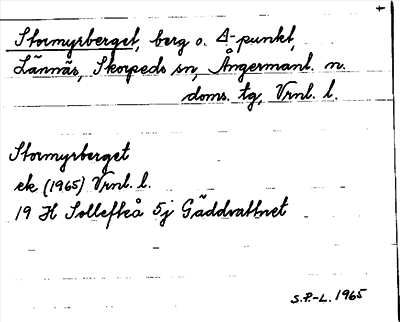 +
Stormyrberget, berg o. Δ-punkt,
Lännäs, Skorpeds sn, Ångermanl. n.
doms. tg, Vrnl. l.
Stormyrberget
ek (1965) Vrnl. l.
19 H Sollefteå 5j Gäddvattnet
S.P.-L. 1965